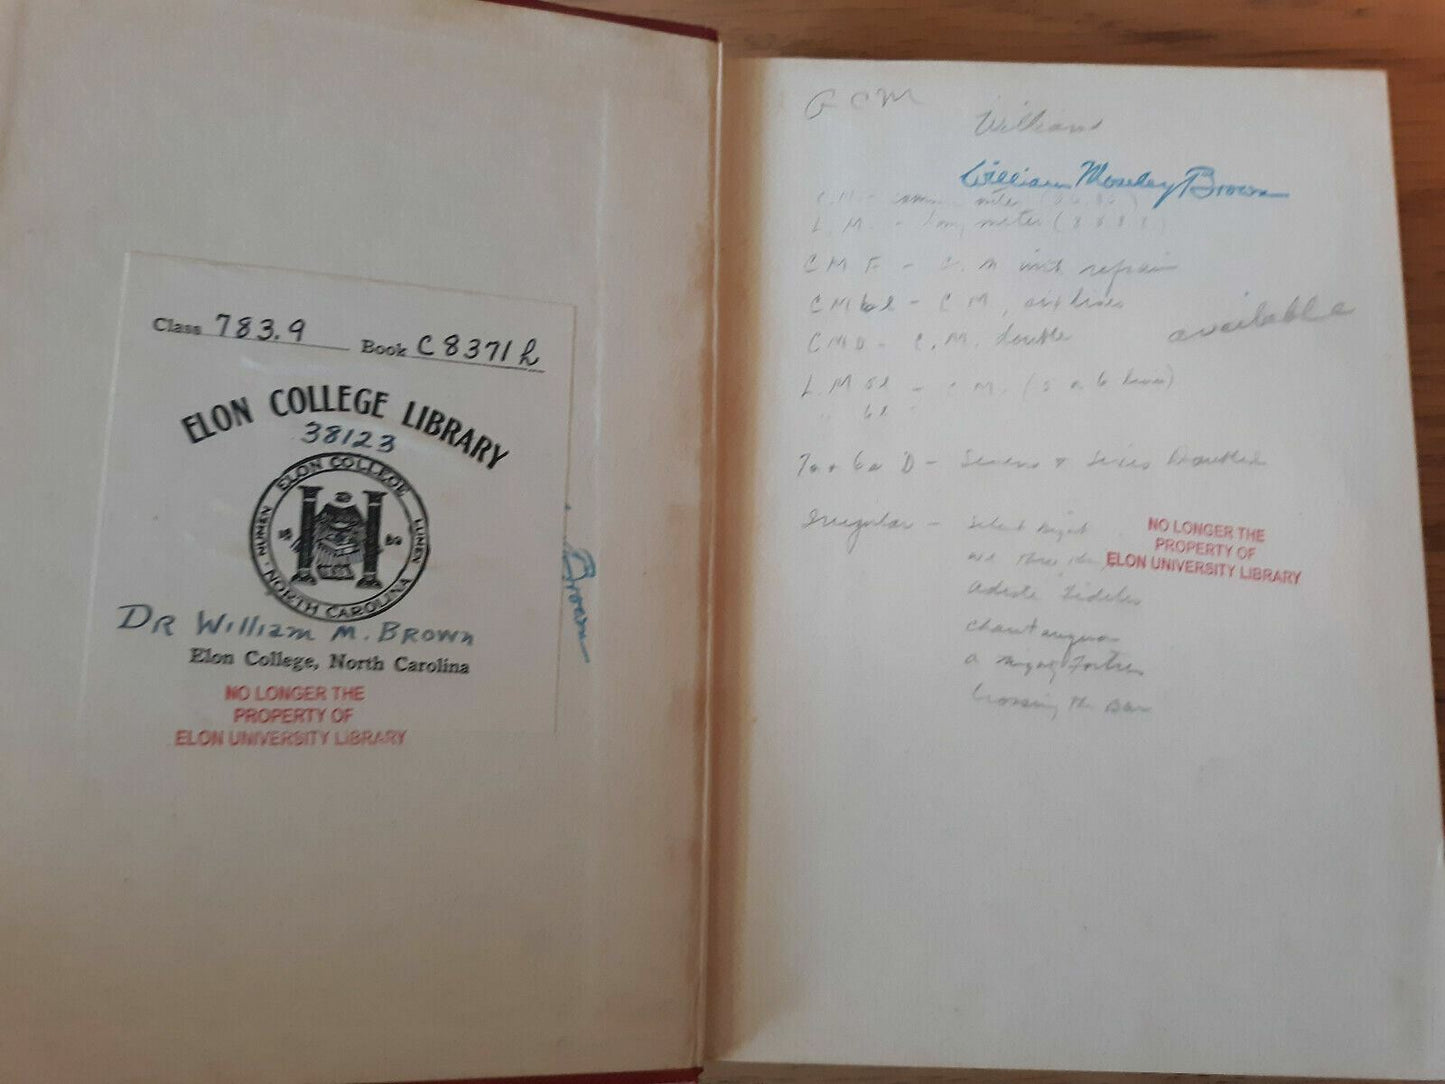 Class 783.9 Book C8371h
ELON COLLEGE LIBRARY
38123
ELON COLLEGE
NUMEN LUMEN
18 89
NORTH CAROLINA
DR William M. BROWN
Elon College, North Carolina
NO LONGER THE
PROPERTY OF
ELON UNIVERSITY LIBRARY
Brown
G C M
William
William Moseley Brown
C.M. - meter
L.M. - long meter (8 8 8 8)
C M - C.M with refrain
C M 6l - C M, six lines
available
C M D - C.M. double
L M 5l - C M. (5 or 6 lines)
" 6l "
7s + 6s D - Sevens & Sixes Doubled
Irregular - Silent Night
NO LONGER THE
PROPERTY OF
ELON UNIVERSITY LIBRARY
We Three
Adeste Fideles
Chautauqua
A Mighty Fortress
Crossing the Bar